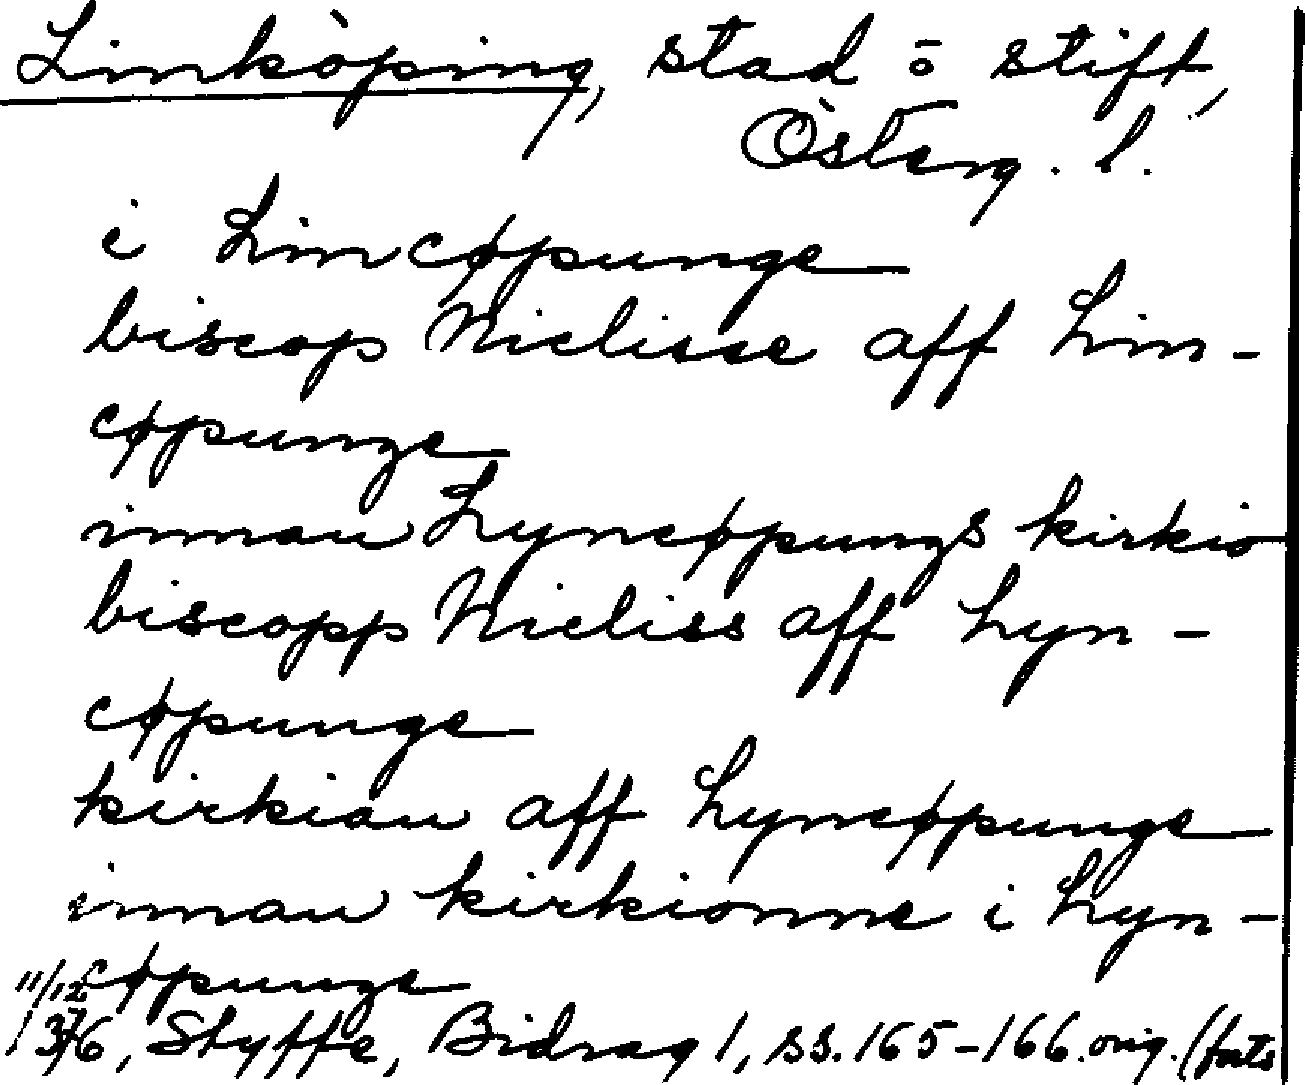 Linköping, stad o stift,
Österg. l.
i Lincøpunge
biscop Niclisse aff Lin-
cøpunge
innan Lyncøpungs kirkio
biscopp Nicliss aff Lyn-
cøpunge
kirkian aff Lyncøpunge
innan kirkionne i Lyn-
cøpunge
11/12
1376, Styffe, Bidrag 1, ss. 165-166. orig. (forts